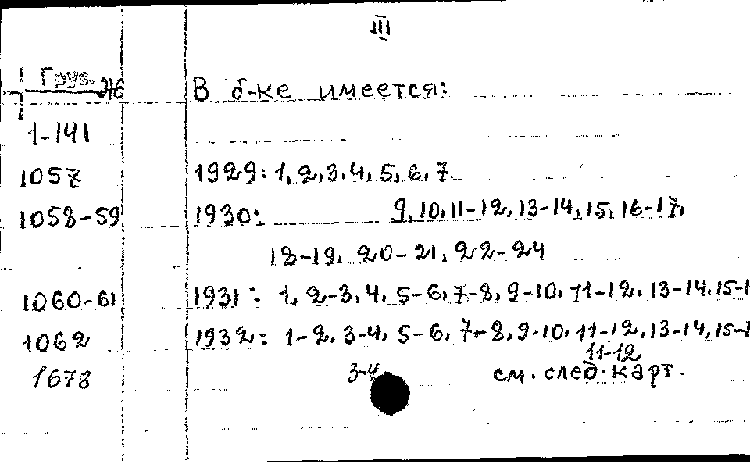 III
Груз. В б-ке имеется:
1-141
1057 1929: 1, 2, 3, 4, 5, 6, 7
1058-59 1930: 9, 10, 11-12, 13-14, 15, 16-17,
18-19, 20-21, 22-24
1060-61 1931: 1, 2-3, 4, 5-6, 7-8, 9-10, 11-12, 13-14, 15-1
1062 1932: 1-2, 3-4, 5-6, 7-8, 9-10, 11-12, 13-14, 15-1
11-12
1678 3-4 см. след. карт.